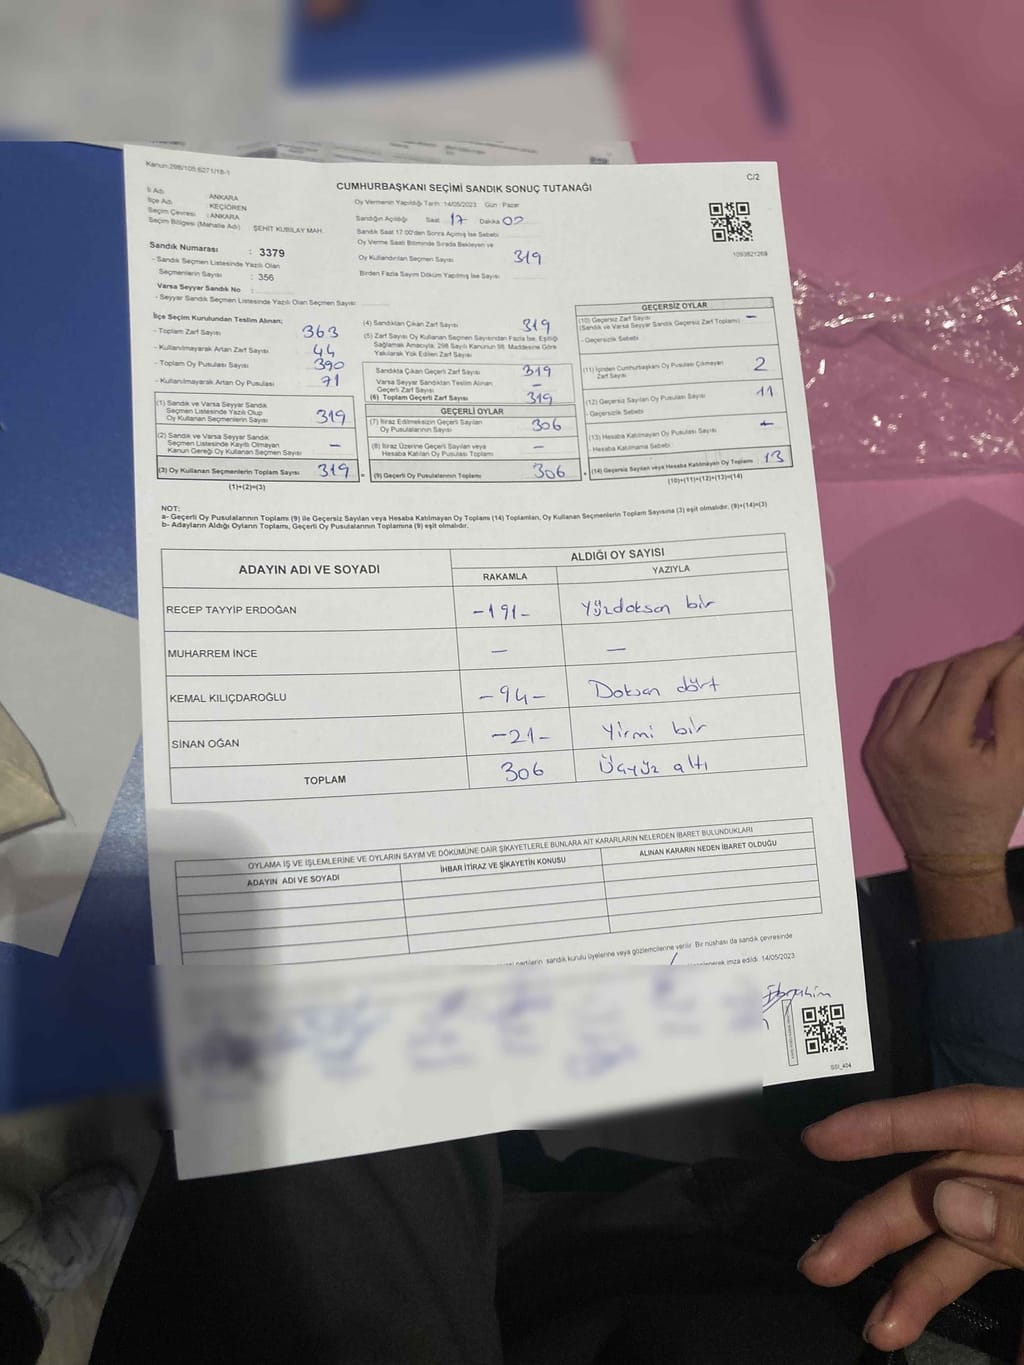 Kanun:298/105;6271/18-1
C/2
CUMHURBAŞKANI SEÇİMİ SANDIK SONUÇ TUTANAĞI
İli Adı : ANKARA
İlçe Adı : KEÇİÖREN
Seçim Çevresi : ANKARA
Seçim Bölgesi (Mahalle Adı) ŞEHİT KUBİLAY MAH.
Sandık Numarası : 3379
- Sandık Seçmen Listesinde Yazılı Olan
Seçmenlerin Sayısı : 356
Varsa Seyyar Sandık No :
- Seyyar Sandık Seçmen Listesinde Yazılı Olan Seçmen Sayısı:
Oy Vermenin Yapıldığı Tarih :14/05/2023 Gün Pazar
Sandığın Açıldığı Saat 17 Dakika 00
Sandık Saat 17:00'den Sonra Açılmış İse Sebebi
Oy Verme Saati Bitiminde Sırada Bekleyen ve
Oy Kullandırılan Seçmen Sayısı 319
Birden Fazla Sayım Döküm Yapılmış İse Sayısı
1093821269
İlçe Seçim Kurulundan Teslim Alınan;
- Toplam Zarf Sayısı 363
- Kullanılmayarak Artan Zarf Sayısı 44
- Toplam Oy Pusulası Sayısı 390
- Kullanılmayarak Artan Oy Pusulası 71
(1) Sandık ve Varsa Seyyar Sandık
Seçmen Listesinde Yazılı Olup
Oy Kullanan Seçmenlerin Sayısı 319
(2) Sandık ve Varsa Seyyar Sandık
Seçmen Listesinde Kayıtlı Olmayan
Kanun Gereği Oy Kullanan Seçmen Sayısı –
(3) Oy Kullanan Seçmenlerin Toplam Sayısı 319
(1)+(2)=(3)
(4) Sandıktan Çıkan Zarf Sayısı 319
(5) Zarf Sayısı Oy Kullanan Seçmen Sayısından Fazla İse, Eşitliği
Sağlamak Amacıyla; 298 Sayılı Kanunun 98. Maddesine Göre
Yakılarak Yok Edilen Zarf Sayısı
Sandıkta Çıkan Geçerli Zarf Sayısı 319
Varsa Seyyar Sandıktan Teslim Alınan
Geçerli Zarf Sayısı –
(6) Toplam Geçerli Zarf Sayısı 319
GEÇERLİ OYLAR
(7) İtiraz Edilmeksizin Geçerli Sayılan
Oy Pusulalarının Sayısı 306
(8) İtiraz Üzerine Geçerli Sayılan veya
Hesaba Katılan Oy Pusulası Toplamı –
= (9) Geçerli Oy Pusulalarının Toplamı 306
GEÇERSİZ OYLAR
(10) Geçersiz Zarf Sayısı
(Sandık ve Varsa Seyyar Sandık Geçersiz Zarf Toplamı) –
- Geçersizlik Sebebi
(11) İçinden Cumhurbaşkanı Oy Pusulası Çıkmayan
Zarf Sayısı 2
(12) Geçersiz Sayılan Oy Pusulası Sayısı 11
- Geçersizlik Sebebi
(13) Hesaba Katılmayan Oy Pusulası Sayısı –
- Hesaba Katılmama Sebebi
+ (14) Geçersiz Sayılan veya Hesaba Katılmayan Oy Toplamı 13
(10)+(11)+(12)+(13)=(14)
NOT:
a- Geçerli Oy Pusulalarının Toplamı (9) ile Geçersiz Sayılan veya Hesaba Katılmayan Oy Toplamı (14) Toplamları, Oy Kullanan Seçmenlerin Toplam Sayısına (3) eşit olmalıdır. (9)+(14)=(3)
b- Adayların Aldığı Oyların Toplamı, Geçerli Oy Pusulalarının Toplamına (9) eşit olmalıdır.
ADAYIN ADI VE SOYADI ALDIĞI OY SAYISI
RAKAMLA YAZIYLA
RECEP TAYYİP ERDOĞAN -191- Yüzdoksan bir
MUHARREM İNCE – –
KEMAL KILIÇDAROĞLU -94- Doksan dört
SİNAN OĞAN -21- Yirmi bir
TOPLAM 306 Üçyüz altı
OYLAMA İŞ VE İŞLEMLERİNE VE OYLARIN SAYIM VE DÖKÜMÜNE DAİR ŞİKAYETLERLE BUNLARA AİT KARARLARIN NELERDEN İBARET BULUNDUKLARI
ADAYIN ADI VE SOYADI İHBAR İTİRAZ VE ŞİKAYETİN KONUSU ALINAN KARARIN NEDEN İBARET OLDUĞU
partilerin sandık kurulu üyelerine veya gözlemcilerine verilir. Bir nüshası da sandık çevresinde
imza edildi. 14/05/2023
İbrahim
SSI_404